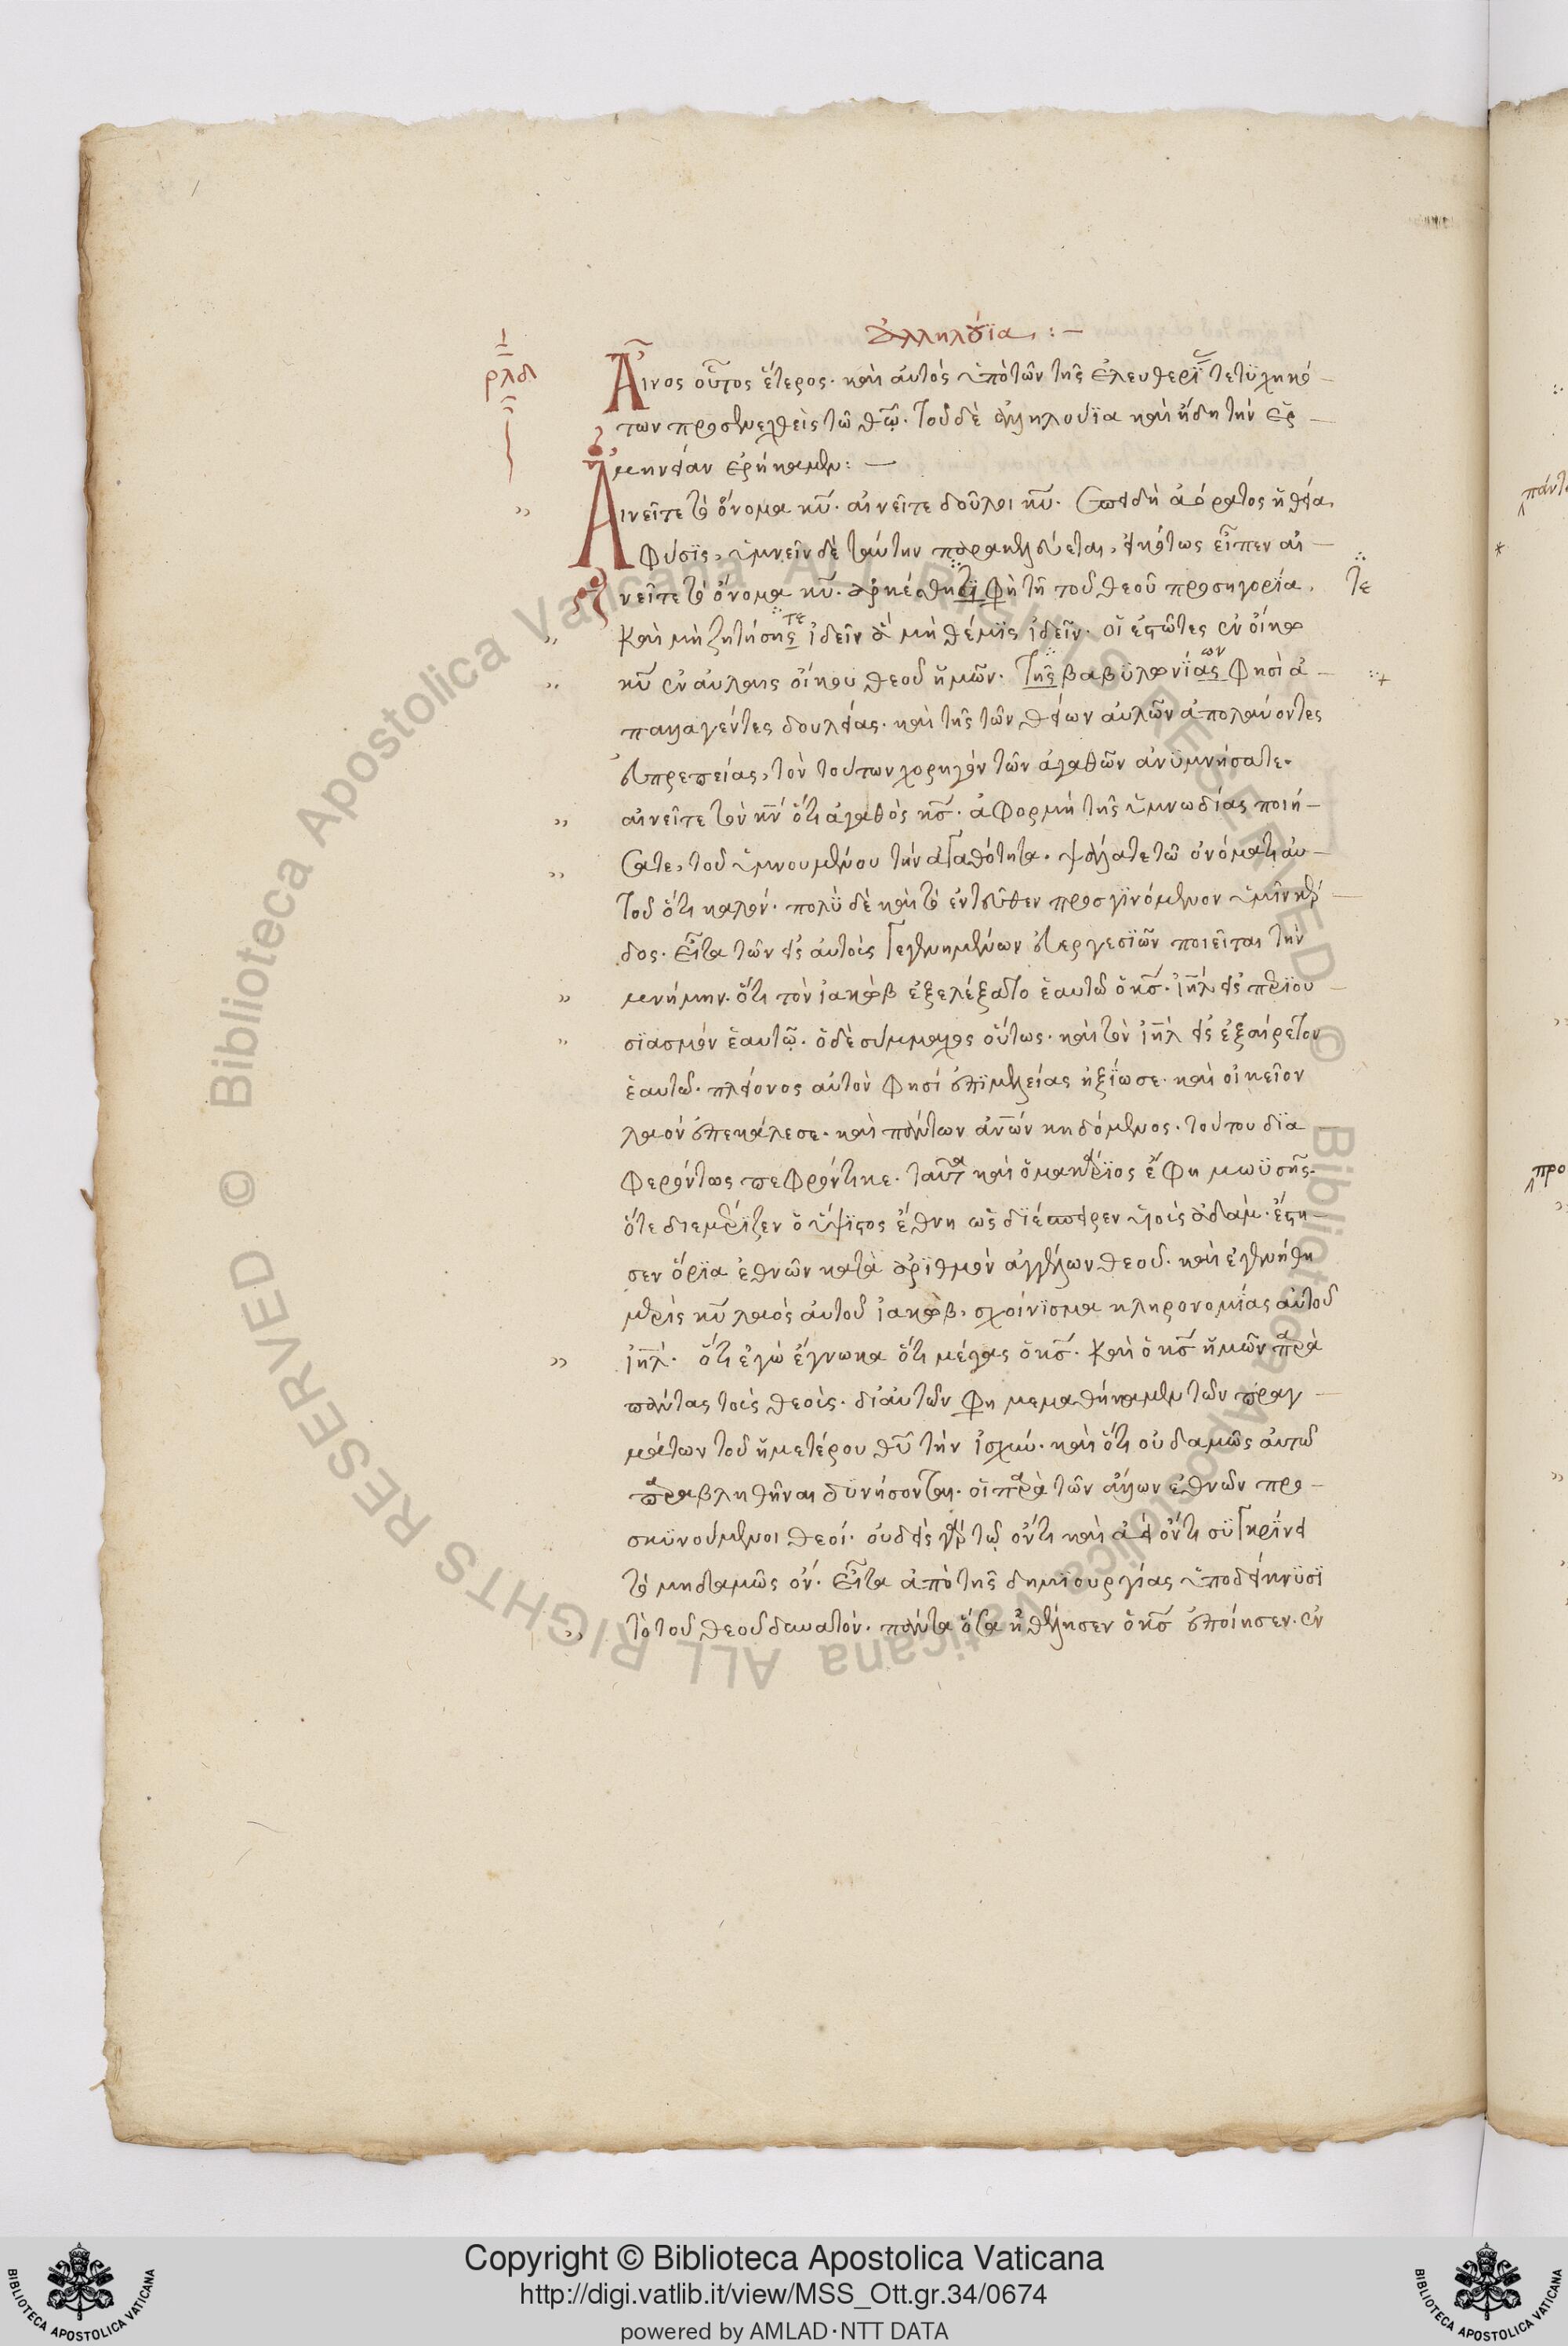 ἀλληλούϊα :—
ρλδ
Αἶνος οὗτος ἕτερος· καὶ αὐτὸς ὑπὸ τῶν τῆς ἐλευθερί τετϋχηκό–
των προσενεχθεὶς τῶ θῶ· τοῦ δὲ ἀλληλούϊα καὶ ἤδη τὴν ἑρ–
μηνείαν εἰρήκαμεν :—
Αἰνεῖτε τὸ ὄνομα κυ· αἰνεῖτε δοῦλοι κυ· ἐπειδὴ ἀόρατος ἡ θεία
φύσϊς, ὑμνεῖν δὲ ταύτην παρακελεύεται, εἰκότως εἶπεν αἰ–
νεῖτε τὸ ὄνομα κυ· ἀρκέσθητϊ φη τῆ τοῦ θεοῦ προσηγορία,
τε
καὶ μὴ ζητήσης ἰδεῖν ὃ μὴ θέμϊς ἰδεῖν· οἱ ἑστῶτες ἐν οἴκω
κυ ἐν αὐλαις οἴκου θεοῦ ἡμῶν· τῆς βαβϋλωνίας φησὶ ἀ–
παλλαγέντες δουλείας· καὶ τῆς τῶν θείων αὐλῶν ἀπολαύοντες
εὐπρεπείας, τὸν τούτων χορηγὸν τῶν ἀγαθῶν ἀνϋμνήσατε·
αἰνεῖτε τὸν κν ὅτι ἀγαθὸς κς· ἀφορμὴ τῆς ὑμνωδίας ποιή–
σατε, τοῦ ὑμνουμένου τὴν ἀγαθότητα· ψάλατε τῶ ὀνόματι αὐ–
τοῦ ὅτι καλόν· πολϋ δὲ καὶ τὸ ἐντεῦθεν προσγϊνόμενον ὑμῖν κέρ
δος· εἶτα τῶν εἰς αὐτοὺς γεγενημένων εὐεργεσϊῶν ποιεῖται τὴν
μνήμην· ὅτι τὸν ἰακὼβ ἐξελέξατο ἑαυτῶ ὁ κς· ιηλ εἰς πρϊου
σϊασμὸν ἑαυτῶ· ὁ δὲ σύμμαχος οὕτως· καὶ τὸν ιηλ εἰς ἐξαίρετον
ἑαυτῶ· πλείονος αὐτὸν φησὶ ἐπϊμελείας ἠξίωσε· καὶ οἰκεῖον
λαὸν ἐπεκάλεσε· καὶ πάντων ἀνων κηδόμενος· τούτου δϊα
φερόντως πεφρόντικε· ταῦτα καὶ ὁ μακάρϊος ἔφη μωϋσῆς·
ὅτε διεμέρϊζεν ὁ ὕψϊστος ἔθνη ὡς δϊέσπειρεν υἱοὺς ἀδάμ· ἔστη–
σεν ὅρϊα ἐθνῶν κατὰ ἀρϊθμὸν ἀγγέλων θεοῦ· καὶ ἐγενήθη
μερὶς κυ λαὸς αὐτοῦ ἰακὼβ, σχοίνϊσμα κληρονομίας αὐτοῦ
ιηλ· ὅτι ἐγὼ ἔγνωκα ὅτι μέγας ὁ κς· καὶ ὁ κς ἡμῶν παρὰ
πάντας τοὺς θεούς· δι αὐτῶν φη μεμαθήκαμεν τῶν πραγ–
μάτων τοῦ ἡμετέρου θυ τὴν ἰσχύν· καὶ ὅτι οὐδαμῶς αὐτῶ
παραβληθῆναι δϋνήσονται· οἱ παρὰ τῶν ἄλλων ἐθνῶν προ–
σκϋνούμενοι θεοί· οὐδεὶς γὰρ τῶ ὄντι καὶ ἀεὶ ὄντι σϋγκρΐνει
τὸ μηδαμῶς ὄν· εἶτα ἀπὸ τῆς δημϊουργίας ὑποδείκνϋσϊ
τὸ τοῦ θεοῦ δυνατόν· πάντα ὅσα ἠθέλησεν ὁ κς ἐποίησεν· ἐν
Copyright © Biblioteca Apostolica Vaticana
http://digi.vatlib.it/view/MSS_Ott.gr.34/0674
powered by AMLAD·NTT DATA
BIBLIOTECA APOSTOLICA VATICANA
BIBLIOTECA APOSTOLICA VATICANA
© Biblioteca Apostolica Vaticana ALL RIGHTS RESERVED
© Biblioteca Apostolica Vaticana ALL RIGHTS RESERVED